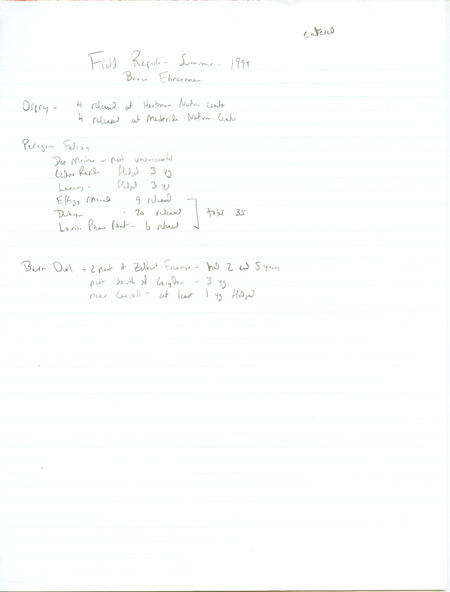 entered
Field Report - Summer - 1999
Bruce Ehresman
Osprey - 4 released at Hartman Nature Center
4 released at Macbride Nature Center
Peregrine Falcon
Des Moines - nest unsuccessful
Cedar Rapids fledged 3 yg
Lansing - fledged 3 yg
Effigy Mounds 9 released
Dubuque - 20 released total 35
Louisa Power Plant - 6 released
Barn Owl - 2 nest at - had 2 and 5 young
nest south of Corydon - 3 yg
near Carroll - at least 1 yg fledged